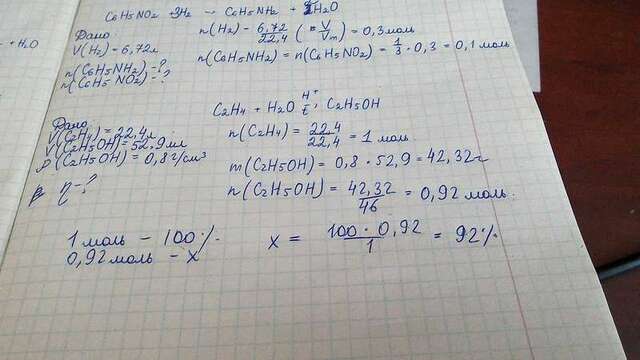 + H2O
C6H5NO2 + 3H2 → C6H5NH2 + 2H2O
Дано
V(H2) = 6,72л
n(C6H5NH2) - ?
n(C6H5NO2) - ?
n(H2) - 6,72/22,4 (n V/Vm) = 0,3 моль
n(C6H5NH2) = n(C6H5NO2) = 1/3 · 0,3 = 0,1 моль
C2H4 + H2O H+ t, C2H5OH
Дано:
V(C2H4) = 22,4л
V(C2H5OH) = 52,9мл
ρ(C2H5OH) = 0,8 г/см³
η - ?
n(C2H4) = 22,4/22,4 = 1 моль
m(C2H5OH) = 0,8 · 52,9 = 42,32г
n(C2H5OH) = 42,32/46 = 0,92 моль.
1 моль - 100%.
0,92 моль - x
x = 100 · 0,92/1 = 92%